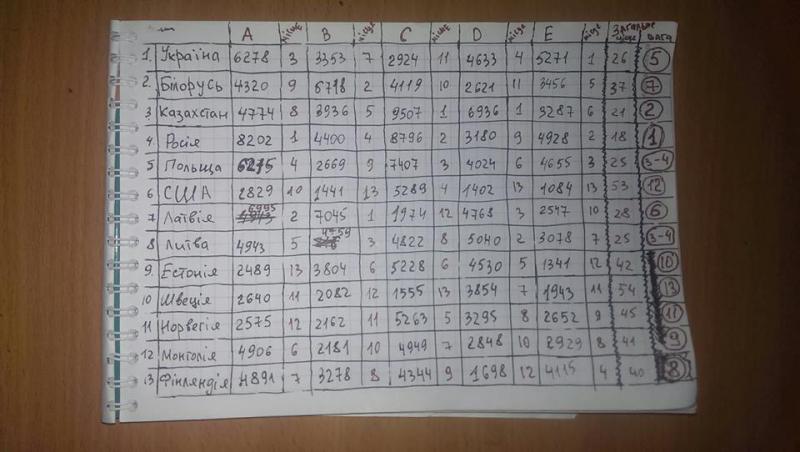 A місце B місце C місце D місце E місце Загальне місце
1. Україна 6278 3 3353 7 2924 11 4633 4 5271 1 26 5
2. Білорусь 4320 9 6718 2 4119 10 2621 11 3456 5 37 7
3 Казахстан 4774 8 3936 5 9507 1 6936 1 3287 6 21 2
4. Росія 8202 1 4400 4 8796 2 3180 9 4928 2 18 1
5 Польща 6215 4 2669 9 7407 3 4024 6 4655 3 25 3-4
6 США 2829 10 1441 13 5289 4 1402 13 1084 13 53 12
7 Латвія 6995 2 7045 1 1974 12 4768 3 2547 10 28 6
8 Литва 4943 5 4759 3 4822 8 5040 2 3078 7 25 3-4
9. Естонія 2489 13 3804 6 5228 6 4530 5 1341 12 42 10
10 Швеція 2640 11 2082 12 1555 13 3854 7 1943 11 54 13
11 Норвегія 2575 12 2162 11 5263 5 3295 8 2652 9 45 11
12 Монголія 4906 6 2181 10 4949 7 2848 10 2929 8 41 9
13 Фінляндія 4891 7 3278 8 4344 9 1698 12 4115 4 40 8